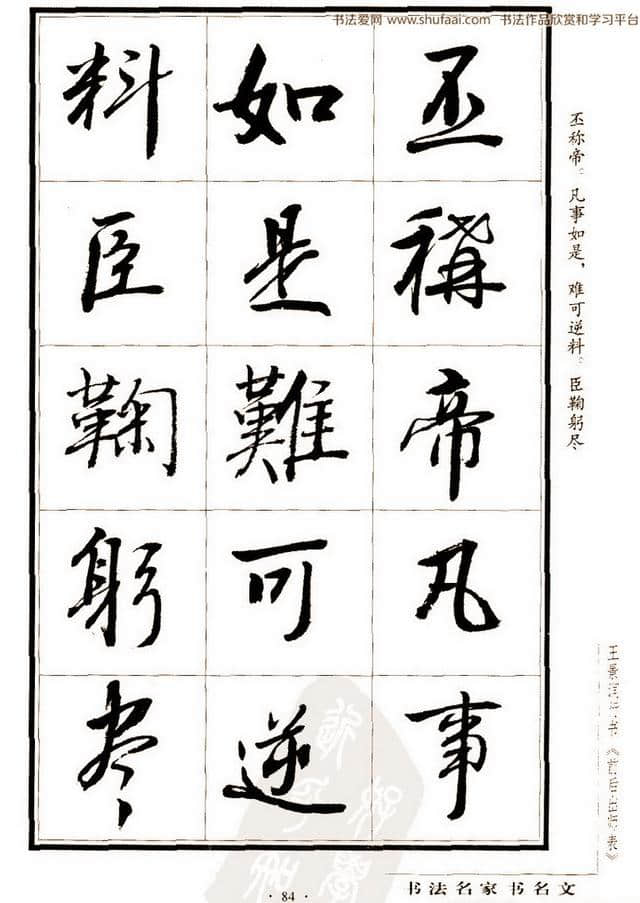 书法爱网 www.shufaai.com 书法作品欣赏和学习平台
丕稱帝凡事
如是難可逆
料臣鞠躬尽
丕称帝。凡事如是，难可逆料。臣鞠躬尽
王景 行书《前后出师表》
书法名家书名文
·84·